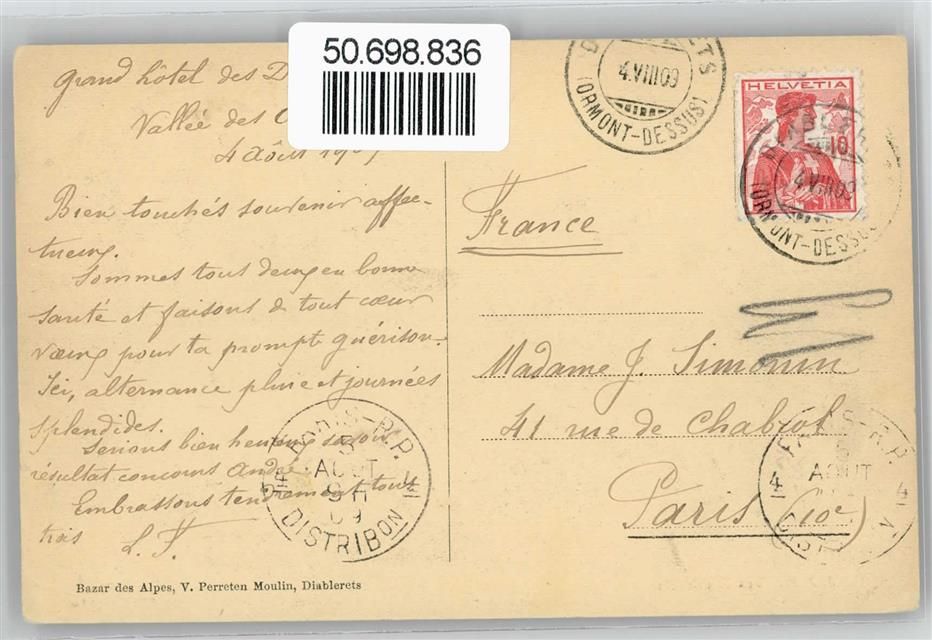 50.698.836
Grand hôtel des D
Vallée des O
4 Août 1909
Bien touchés souvenir affec-
tueux.
Sommes tous deux en bonne
santé et faisons de tout cœur
vœux pour ta prompte guérison.
Ici, alternance pluie et journées
splendides.
Serions bien heureux savoir
résultat concours André.
Embrassons tendrement tous
trois L. F.
Bazar des Alpes, V. Perreten Moulin, Diablerets
4.VIII 09
(ORMONT-DESSUS)
HELVETIA
10
4.VIII 09
(ORMONT-DESSUS)
France
Madame J. Simonin
41 rue de Chabrol
Paris (10e)
PARIS-R.P.
5
AOUT
09
DISTRIBON
4
4
AOUT
4
4